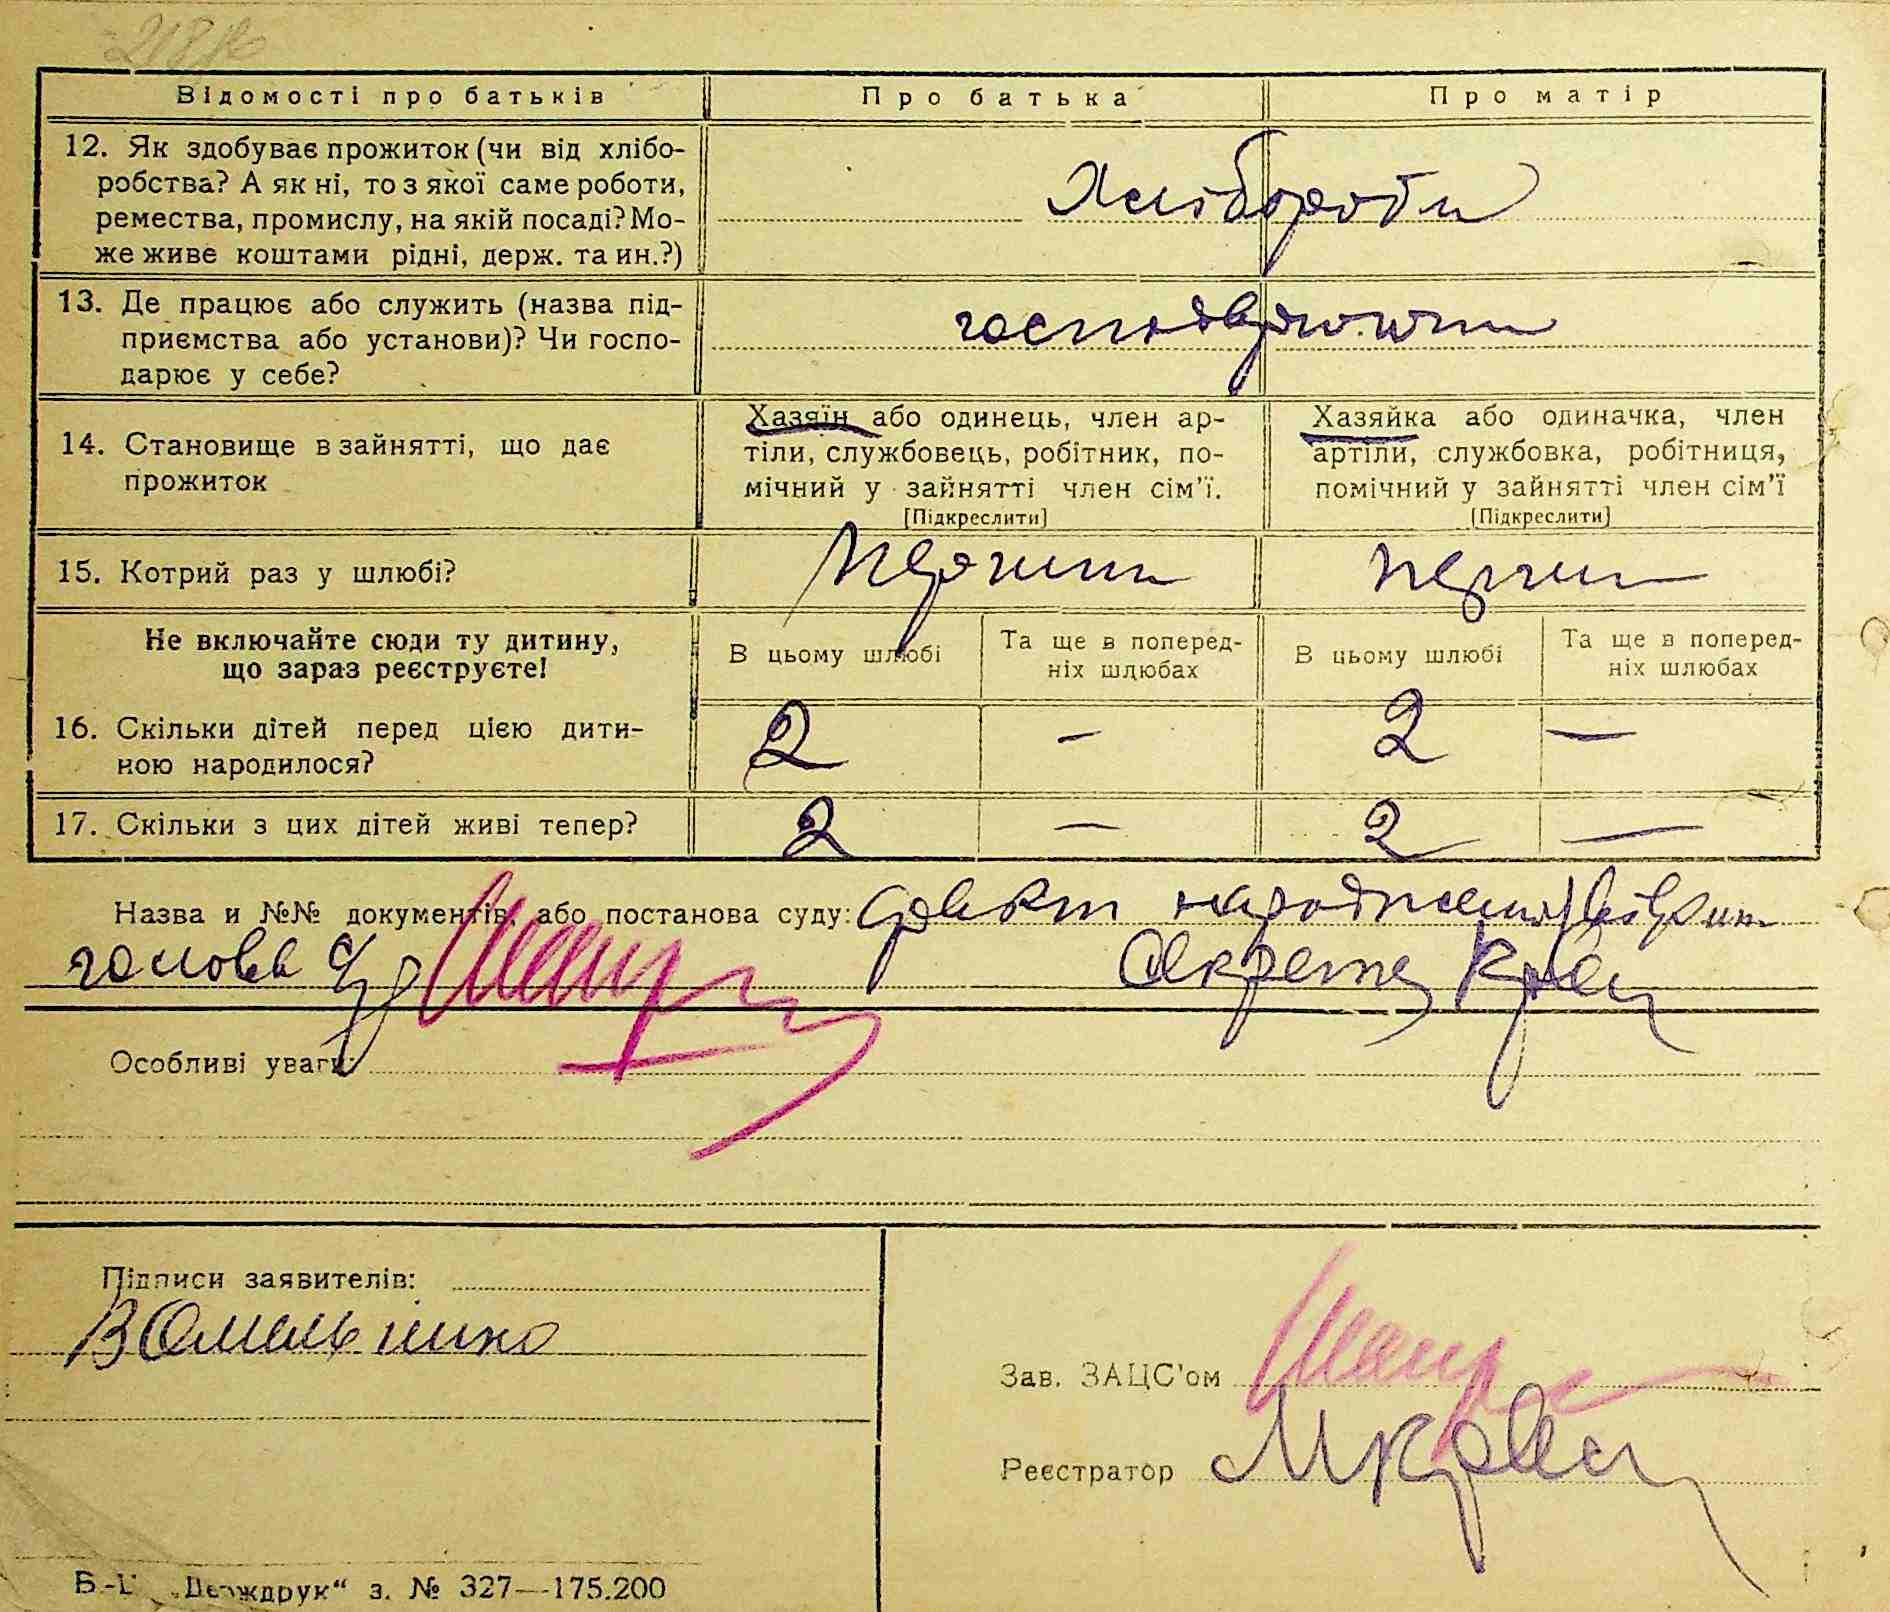 218
Відомості про батьків Про батька Про матір
12. Як здобуває прожиток (чи від хлібо-
робства? А як ні, то з якої саме роботи,
ремества, промислу, на якій посаді? Мо-
же живе коштами рідні, держ. та ин.?)
Хлібороби
13. Де працює або служить (назва під-
приємства або установи)? Чи госпо-
дарює у себе?
14. Становище в зайнятті, що дає
прожиток
Хазяїн або одинець, член ар-
тіли, службовець, робітник, по-
мічний у зайнятті член сім'ї.
[Підкреслити]
Хазяйка або одиначка, член
артіли, службовка, робітниця,
помічний у зайнятті член сім'ї
[Підкреслити]
15. Котрий раз у шлюбі?
Не включайте сюди ту дитину,
що зараз реєструєте!
В цьому шлюбі
Та ще в поперед-
ніх шлюбах
В цьому шлюбі
Та ще в поперед-
ніх шлюбах
16. Скільки дітей перед цією дити-
ною народилося?
2 — 2 —
17. Скільки з цих дітей живі тепер? 2 — 2 —
Назва и №№ документів, або постанова суду: факт народження
голова Секретар Кравец
Особливі уваги:
Підписи заявителів:
В Омельченко
Зав. ЗАЦС'ом
Реєстратор М Кравец
Б.-Ц. „Держдрук“ з. № 327—175.200